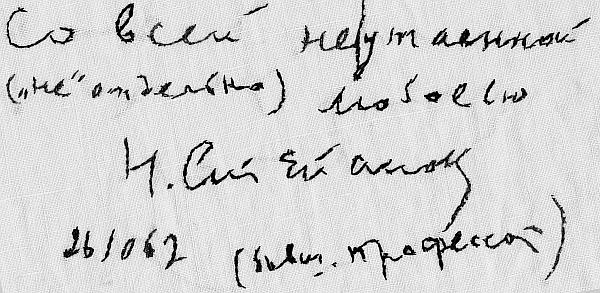 Со всей неутаенной
(„не“ отдельно) любовью
Н. Степанов
(бывш. профессор)